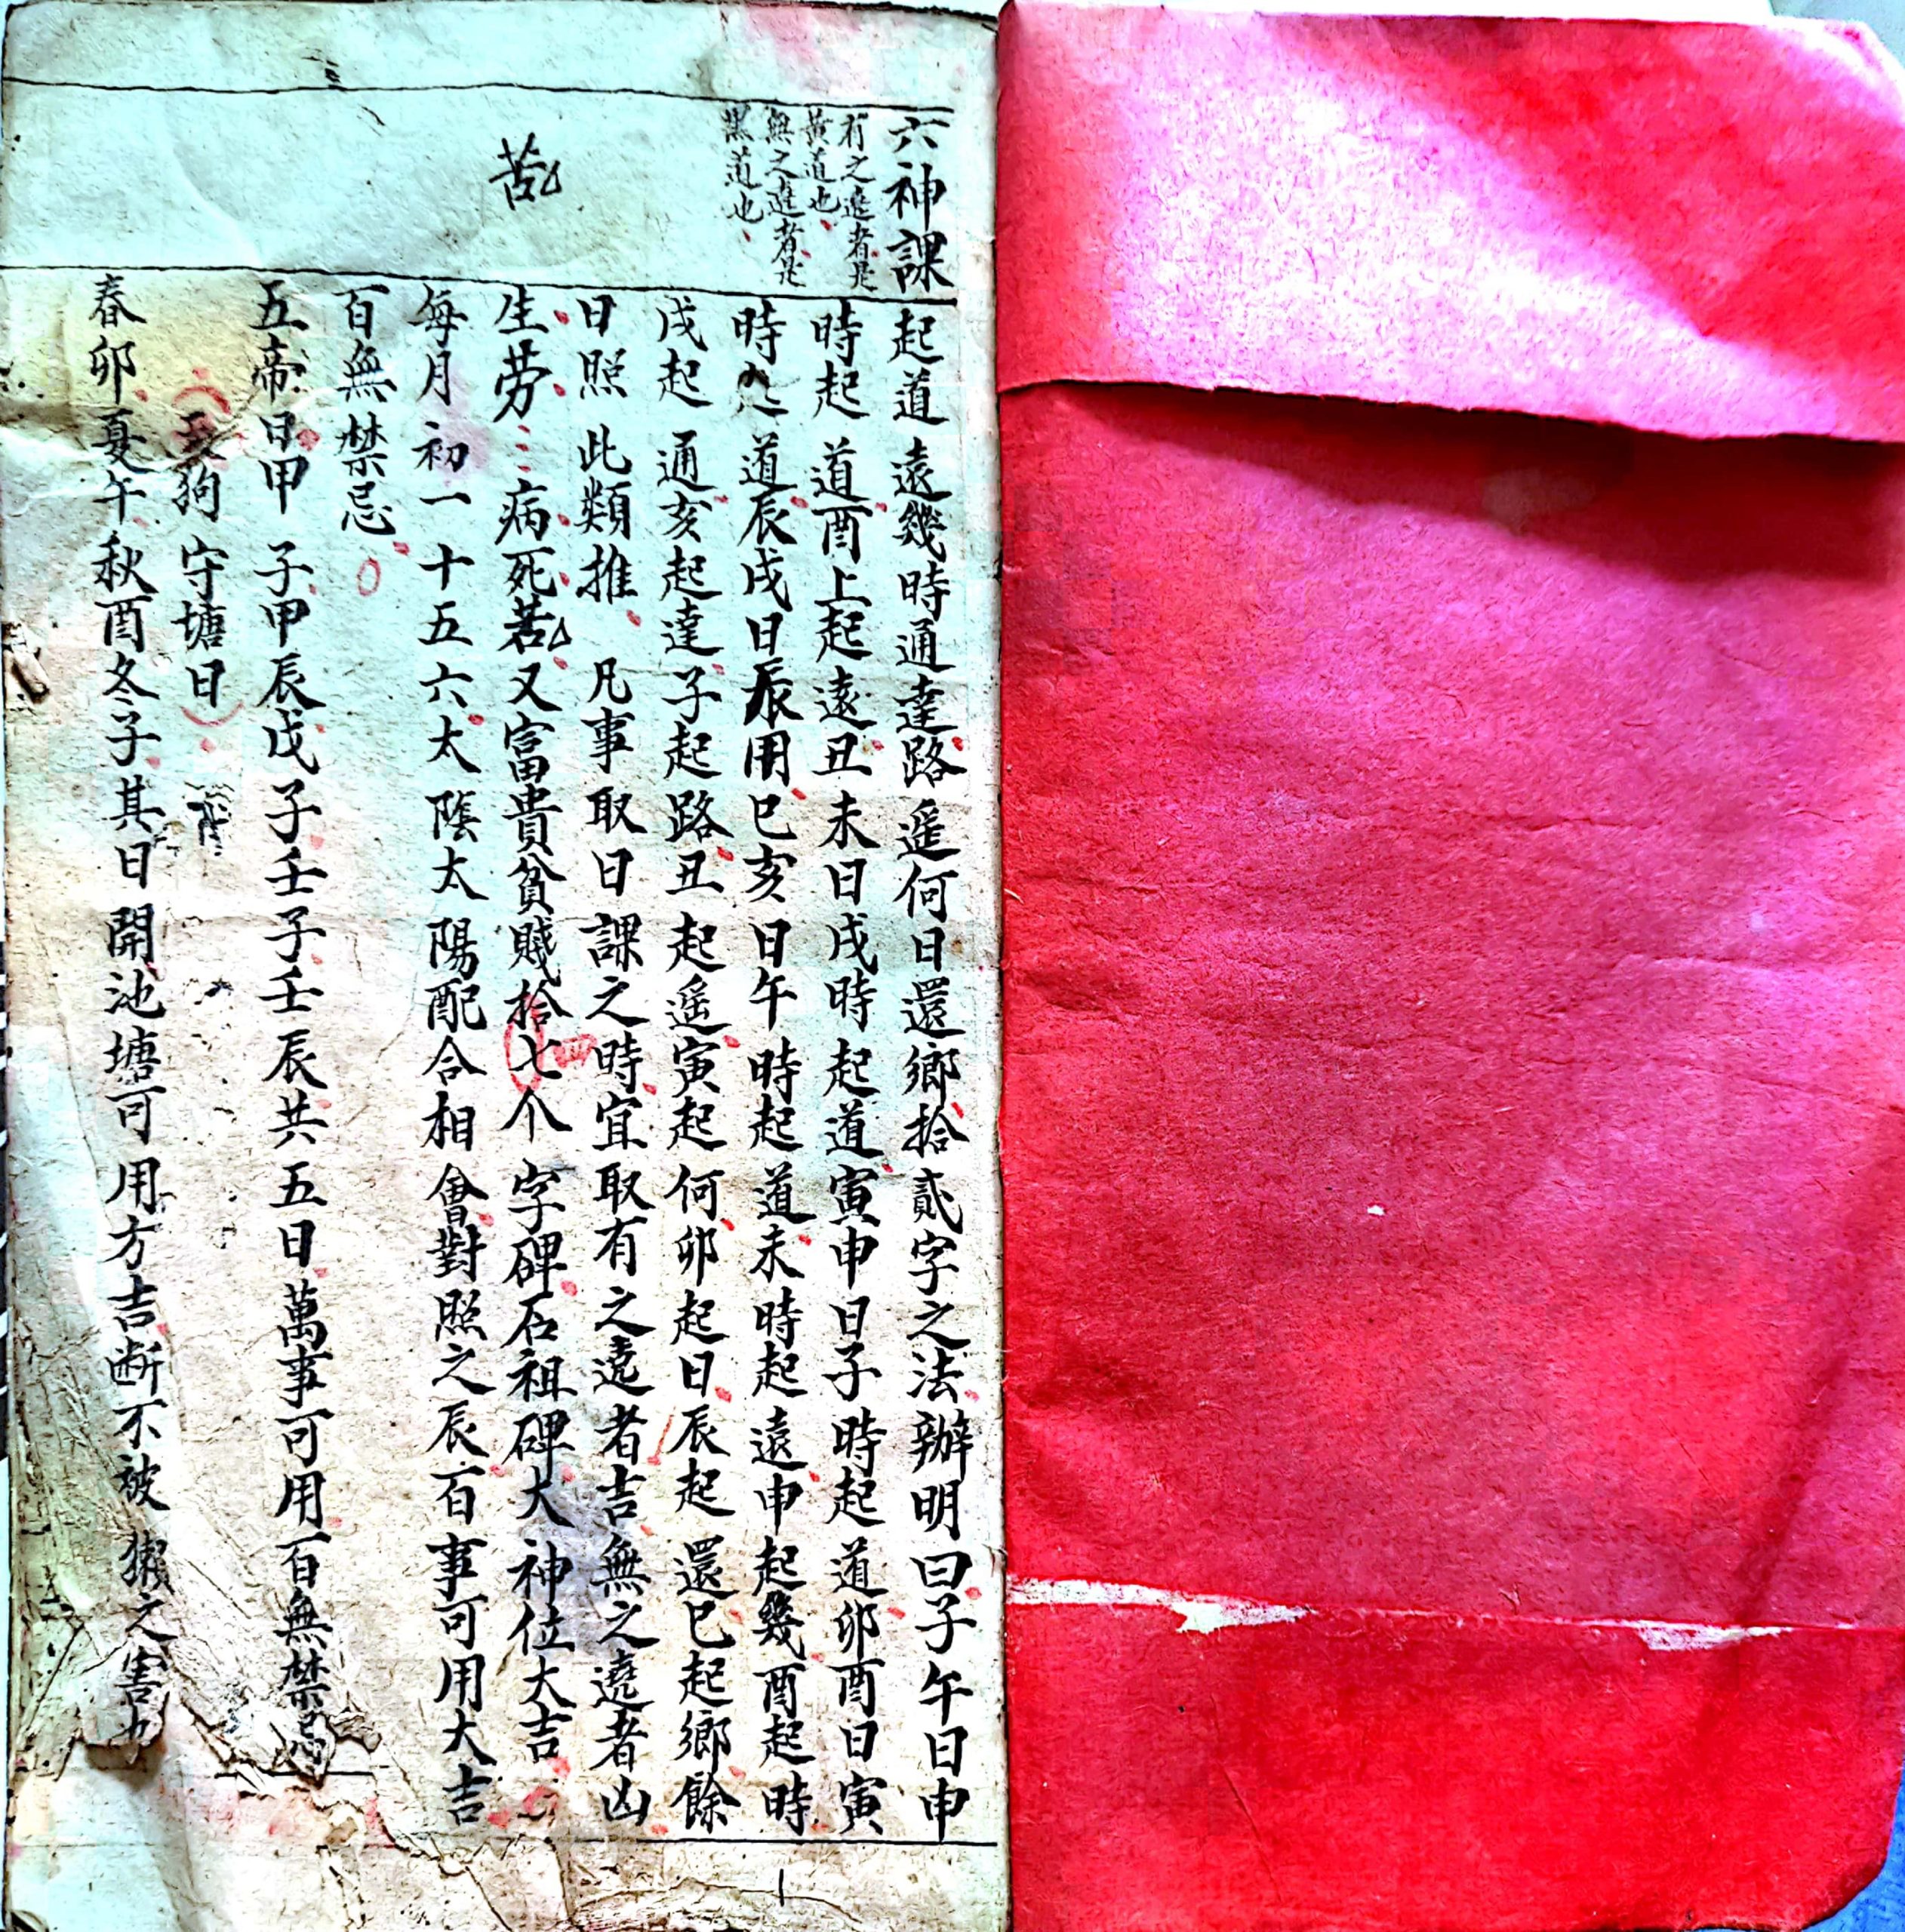 六神課
有之遠者是
黃道也
無之進者是
黑道也
起道遠幾時通達路遥何日還鄉拾貳字之法辦明曰子午日申
時起道酉上起遠丑未日戌時起道寅申日子時起道卯酉日寅
時起道辰戌日辰用巳亥日午時起道未時起遠申起幾酉起時
戌起通亥起達子起路丑起遥寅起何卯起日辰起還巳起鄉餘
日照此類推凡事取日課之時宜取有之遠者吉無之遶者凶
苦
生劳病死苦又富貴貧賤拾七个字碑石祖碑大神位大吉
每月初一十五六太陰太陽配合相會對照之辰百事可用大吉
百無禁忌
五帝日甲子甲辰戊子壬子壬辰共五日萬事可用百無禁忌
狗守塘日
春卯夏午秋酉冬子其日開池塘可用方吉断不被獺之害